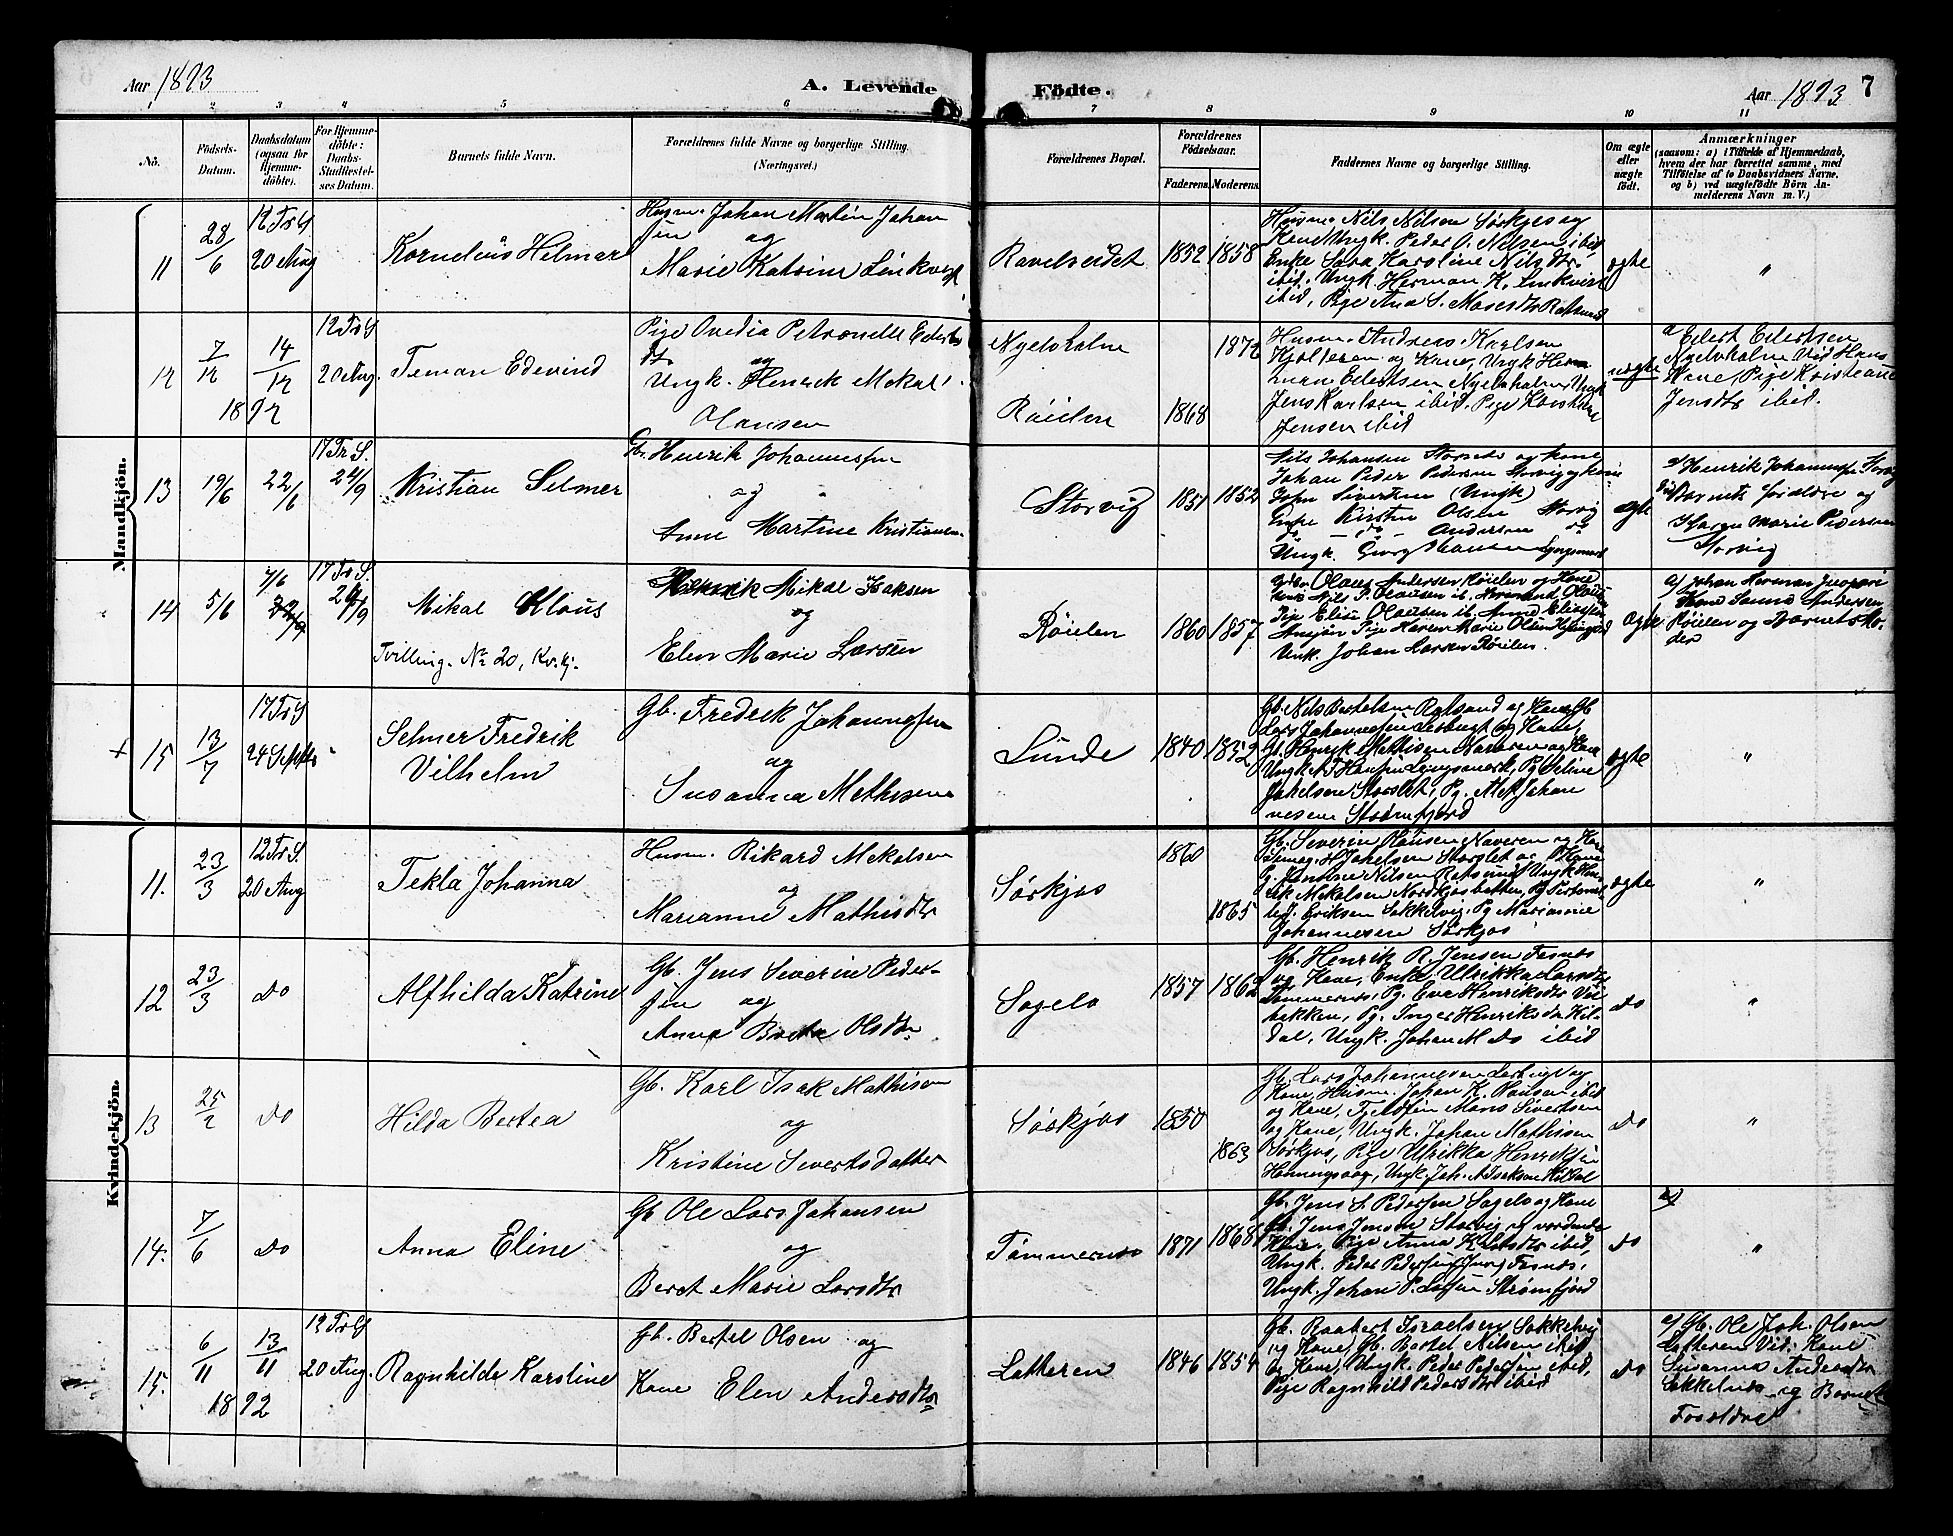 Aar 1893
A. Levende
Födte.
Aar 1893
7
1 2 3 4 5 6 7 8 9 10 11
No.
Födsels-Datum.
Daabsdatum (ogsaa for Hjemme-döbte).
For Hjemme-döbte: Daabs-Stadfæstel-ses Datum.
Barnets fulde Navn.
Forældrenes fulde Navne og borgerlige Stilling.
(Næringsvei.)
Forældrenes Bopæl.
Forældrenes Födselsaar.
Faderens. Moderens.
Faddernes Navne og borgerlige Stilling.
Om ægte eller uægte födt.
Anmærkninger
(saasom: a) i Tilfælde af Hjemmedaab, hvem der har forrettet samme, med Tilföielse af to Daabsvidners Navne. og b) ved uægtefödte Börn An-melderens Navn m. V.)
Mandkjön.
11
28/6
12 Tr S
20 Aug
Kornelius Helmar
Husm. Johan Martin Johan
sen og
Marie Katrine Linkvist
Ravelseidet
1852 1858
Husm. Nils Nilsen Sørkjos og
Kone Ungk. Peder O. Nilsen ibid
Enke Sara Karoline Nilsdtr.
ibid. Ungk. Herman K. Linkvist
ibid, Pige Ana S. Mosesdtr Rotsund
ægte
"
12
7/12
14/12
1892
12 Tr S
20 Aug.
Teman Edevind
Pige Ovedia Petronelle Eilerts
dtr og
Ungk. Henrik Mekal
Olausen
Nyelvholme
Røielen
1872
1868
Husm. Andreas Karlsen
Kjölleren og Kone, Ungk Her-
Eilertsen Nyelvholme, Ungk
Jens Karlsen ibid. Pige
Jensen ibid
uægte
a) Eilert Eilertsen
Nyelvholme Vid. Hans
Kone, Pige Kristiane
Jensdtr ibid.
13
19/6
22/6
17 Tr S.
24/9
Kristian Selmer
Gbr. Henrik Johannessen
og
Anne Martine Kristiansen
Storvig
1851 1852
Nils Johansen Storsede og kone
Johan Peder Pedersen Storvig og kone
John Sivertsen (Ungk)
Enke Kirsten Olsen Storvig
do - do - Andersen do
Ungk. Georg Hansen Lyngsmark
ægte
a) Henrik Johannessen Storvig
Vid: Barnets forældre og
Karen Marie Pedersen
Storvig
14
5/6
7/6
17 Tr S.
24/9
Mikal Klaus
Tvilling. No 20, Kv.kj.
Mikal Isaksen
og
Elen Marie Larsen
Røielen
1860 1857
Olaus Andersen Røielen og Kone
Nils P. Olausen ib.
Pige Elise Olausen ib. Anne Eliassen
Pige Karen Marie Olsen
Ungk. Johan Larsen Røielen.
ægte
a) Johan Herman
Kone Sanna Andersen
Røielen og Barnets Mo-
der
+
15
13/7
17 Tr S
24 Septbr
"
Selmer Fredrik
Vilhelm
Gb. Fredrik Johannessen
og
Susanna Mathisen
Lunde
1840 1852
Gb. Nils Bertelsen Rotsund og Kone, Gb
Lars Johannessen og Kone,
Gb. Henrik Mathisen Naveren og Kone
Ungk A. F. Hansen Lyngsmark, Pg Seline
Jakelsen Storslet, Pg. Alet Johan
nesen Strømfjord
ægte
"
Kvindekjön.
11.
23/3
12 Tr S.
20 Aug
Tekla Johanna
Husm. Rikard Mekelsen
og
Marianne Mathisdtr
Sørkjos
1860
1865
Gb. Severin Olausen Naveren og Kone
Jakelsen Storslet og Kone
G. Jensine Nilsen Rotsund, Ungk Hen-
rik Mekalsen Nordkjosbotten, Pg Petronel
le J. Eriksen Sokkelvig. Pg Marianne
Johannesen Sørkjos
ægte
"
12
23/3
do
Alfhilda Katrine
Gb. Jens Severin Peder-
sen og
Anna Berta Olsdtr.
Sagelo
1857 1862
Gb. Henrik R. Jensen Fosnes
og Kone, Enke Ulrikka Larsdtr
Tømmernes, Pg. Eva Henriksdtr Vos-
bakken, Pg. Inger Henriksdtr Kil-
dal, Ungk. Johan M. do ibid
do
"
13
25/2
do
Hilda Bertea
Gb. Karl Isak Mathisen
og
Kristine Sivertsdatter
Sørkjos
1850
1863
Gb. Lars Johannesen
Kone, Husm. Johan K. Hansen ibid
og Kone, Mons Sivertsen
og Kone, Ungk. Johan Mathisen
Sørkjos, Pige Ulrikka Henriksen
Honningsvaag, Ungk. Joh. A. Isaksen Kildal
do
"
14.
7/6
do
Anna Eline
Gb Ole Lars Johansen
og
Beret Marie Larsdtr
Tømmernes
1871 1868
Gb. Jens S. Pedersen Sagelo og Kone
Gb. Jens Jensen Storvig og vordende
Kone, Pige Anna K. Larsdtr ibid,
Ungk. Peder Pedersen Fosnes,
Ungk. Johan P. Larsen Strømfjord
do
a)
"
15.
6/11
13/11
1892
12 Tr S
20 Aug.
Ragnhilda Karoline
Gb. Bertel Olsen og
Kone Elen Andersdtr
Latteren
1846 1854
Gb. Raabert Israelsen Sokkelvig
og Kone, Gb. Bertel Nilsen ibid
og Kone, Ungk. Peder Pedersen ibid,
Pige Ragnhild Pedersdtr ibid
do
a) Gb. Ole Joh. Olsen
Latteren Vid. Kone
Susanna Andersdtr
og Barnets
Forældre